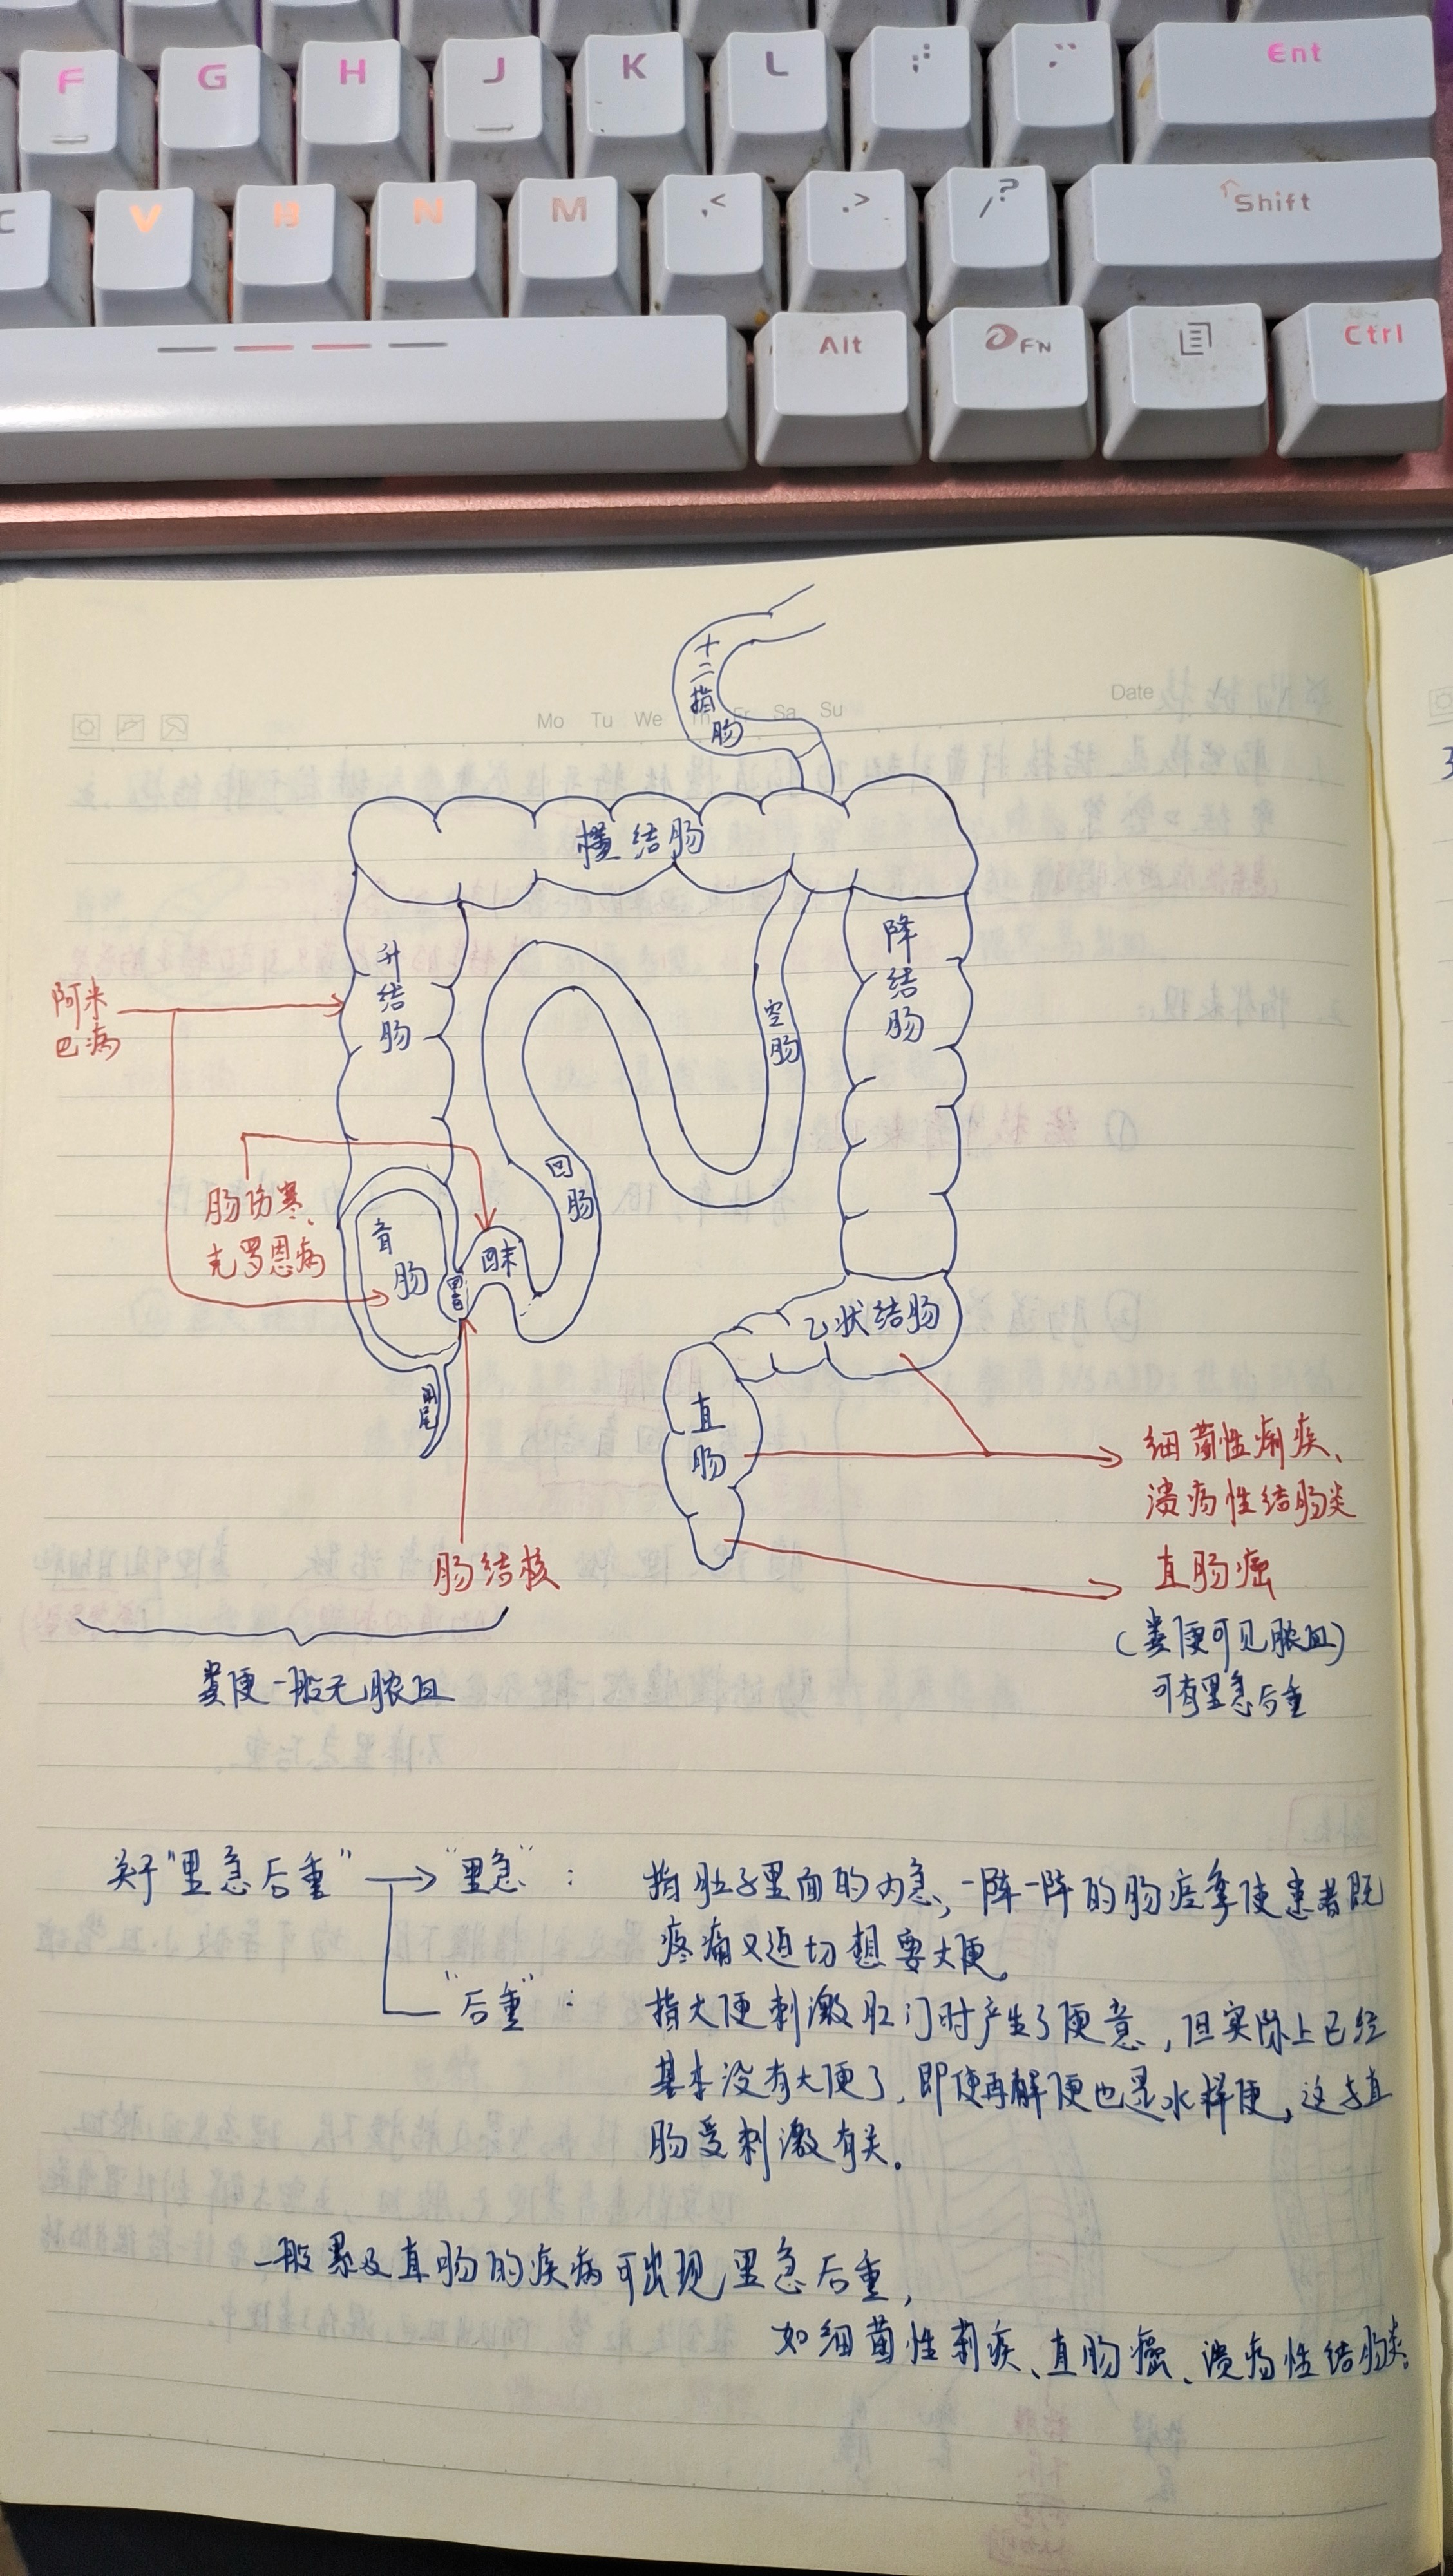 F G H J K L : ; " ' Ent
C V B N M , < . > / ? Shift
Alt FN Ctrl
Mo Tu We Th Fr Sa Su
Date
十二指肠
横结肠
升结肠
降结肠
空肠
阿米
巴病
回肠
肠伤寒、
克罗恩病
盲肠
回末
回盲
乙状结肠
阑尾
直肠
细菌性痢疾、
溃疡性结肠炎
肠结核
直肠癌
(粪便可见脓血)
可有里急后重
粪便一般无脓血
关于"里急后重" → "里急" : 指肚子里面的内急,一阵一阵的肠痉挛使患者既
疼痛又迫切想要大便。
"后重" : 指大便刺激肛门时产生了便意,但实际上已经
基本没有大便了,即使再解便也是水样便,这与直
肠受刺激有关。
一般累及直肠的疾病可出现里急后重,
如细菌性痢疾、直肠癌、溃疡性结肠炎。